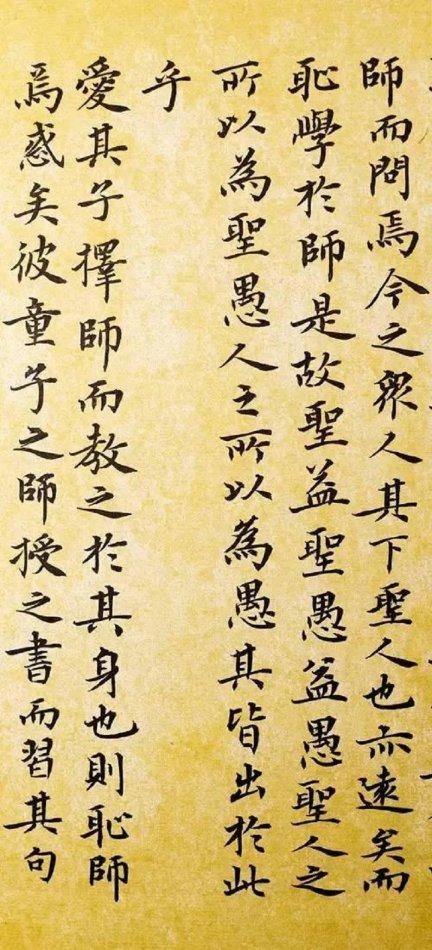 師而問焉今之衆人其下聖人也亦遠矣而
恥學於師是故聖益聖愚益愚聖人之
所以為聖愚人之所以為愚其皆出於此
乎
愛其子擇師而教之於其身也則恥師
焉惑矣彼童子之師授之書而習其句